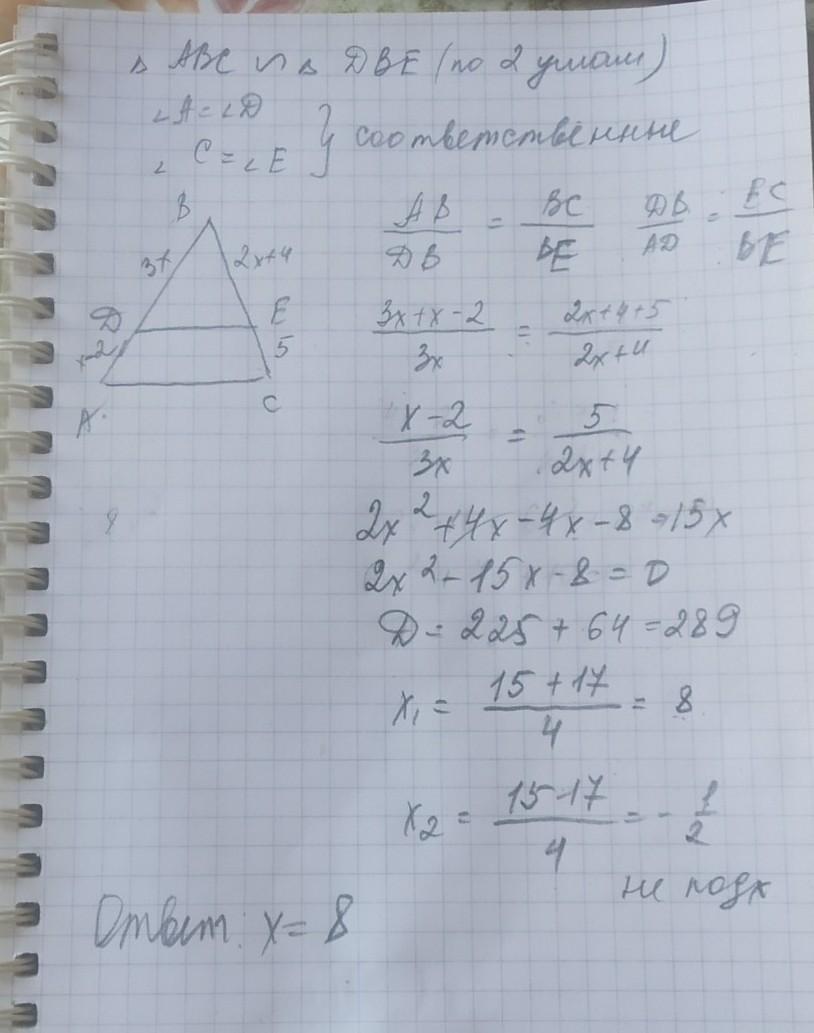 Δ ABC ∾ Δ DBE (по 2 углам)
∠A = ∠D
∠C = ∠E } соответственные
B
3x 2x+4
D E
x-2 5
A C
AB/DB = BC/BE DB/AD = EC/BE
(3x+x-2)/3x = (2x+4+5)/(2x+4)
(x-2)/3x = 5/(2x+4)
2x²+4x-4x-8=15x
2x²-15x-8=0
D=225+64=289
x₁ = (15+17)/4 = 8
x₂ = (15-17)/4 = -1/2
не подх
Ответ: x=8